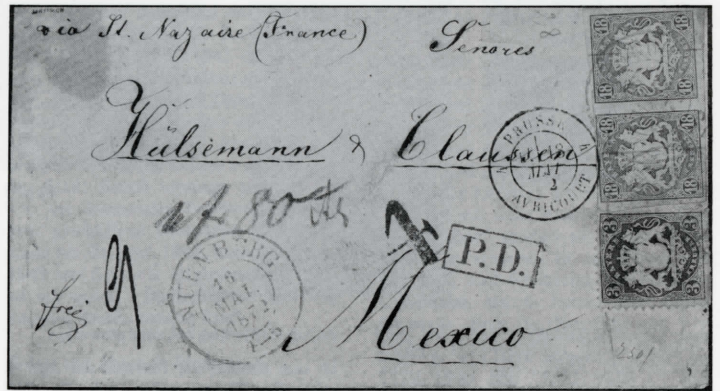 via St. Nazaire (France) Señores
Hülsemann & Clausen
18
18
18
18
PRUSSE
AVRICOURT
2
P.D.
3
3
NUERNBERG
18
MAI
1872
frei
Mexico
2501